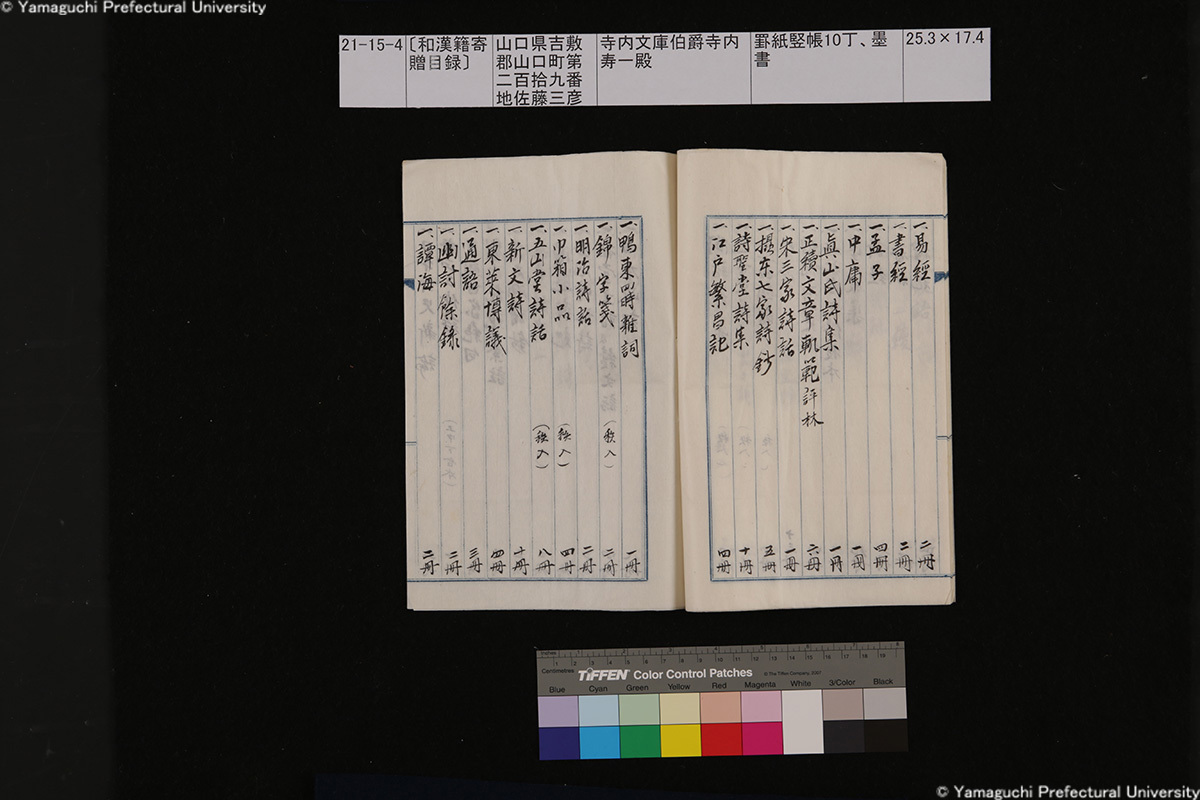 © Yamaguchi Prefectural University
21-15-4
〔和漢籍寄
贈目録〕
山口県吉敷
郡山口町第
二百拾九番
地佐藤三彦
寺内文庫伯爵寺内
寿一殿
罫紙竪帳10丁、墨
書
25.3×17.4
一、易經 二冊
一、書經 二冊
一、孟子 四冊
一、中庸 一冊
一、眞山民詩集 一冊
一、正續文章軌範評林 六冊
一、宋三家詩話 一冊
一、摂东七家詩鈔 五冊
一、詩聖堂詩集 十冊
一、江戸繁昌記 四冊
一、鴨東四時雜詞 一冊
一、錦字箋 (秩入) 二冊
一、明治詩話 二冊
一、巾箱小品 (秩入) 四冊
一、五山堂詩話 (秩入) 八冊
一、新文詩 十冊
一、東萊博議 四冊
一、通語 三冊
一、幽討餘錄 二冊
一、譚海 二冊
Inches
Centimetres
TIFFEN Color Control Patches
© The Tiffen Company, 2007
Blue Cyan Green Yellow Red Magenta White 3/Color Black
© Yamaguchi Prefectural University